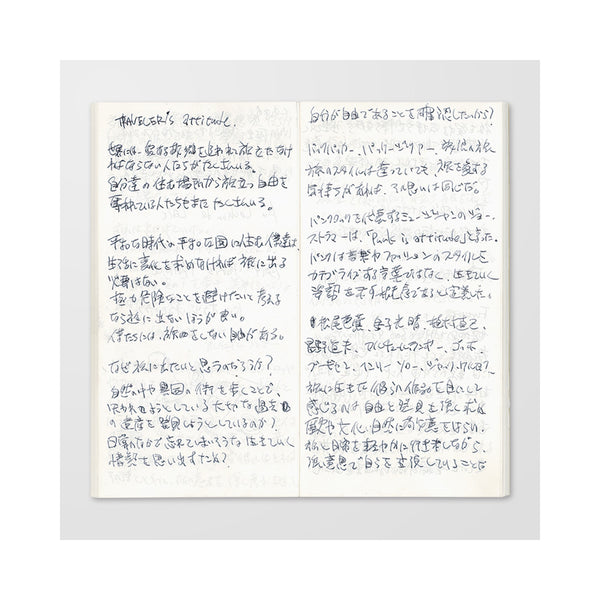 TRAVELER's attitude
世界には、愛する故郷を追われ旅をしなけ
ればならない人たちがたくさんいる。
自分達の住む場所から旅立つ自由を
奪われている人たちもまたたくさんいる。
平和な時代の平和な国に住む僕達は、
生活に変化を求めなければ旅に出る
必要はない。
極力危険なことを避けたいと考える
なら旅に出ないほうが良い。
僕たちには、旅をしない自由がある。
なぜ旅に出たいと思うのだろうか?
自然の中や異国の街を歩くことで、
失われようとしているたくさんの過去
の遺産を発見しようとしているのか?
日常のなかで忘れてしまいそうな生きていく
情熱を思い出すため?
自分が自由であることを確認したいから?
バックパッカー、パッケージツアー、旅人の旅
旅のスタイルは違っていても、旅を愛する
気持ちがあれば、その思いは同じだ。
パンクロックを代表するミュージシャンのジョー・
ストラマーは、「Punk is attitude」と言った。
パンクは音楽やファッションのスタイルを
カテゴライズする言葉ではなく、生きていく
姿勢を示す態度であると定義した。
松尾芭蕉、金子光晴、植村直己、
星野道夫、
旅に生きた彼らの作品を見て
感じるのは自由と発見を強く求め
歴史や文化、自然に敬意をはらい、
旅と日常を軽やかに行き来しながら、
強い意思で自らを表現していることだ